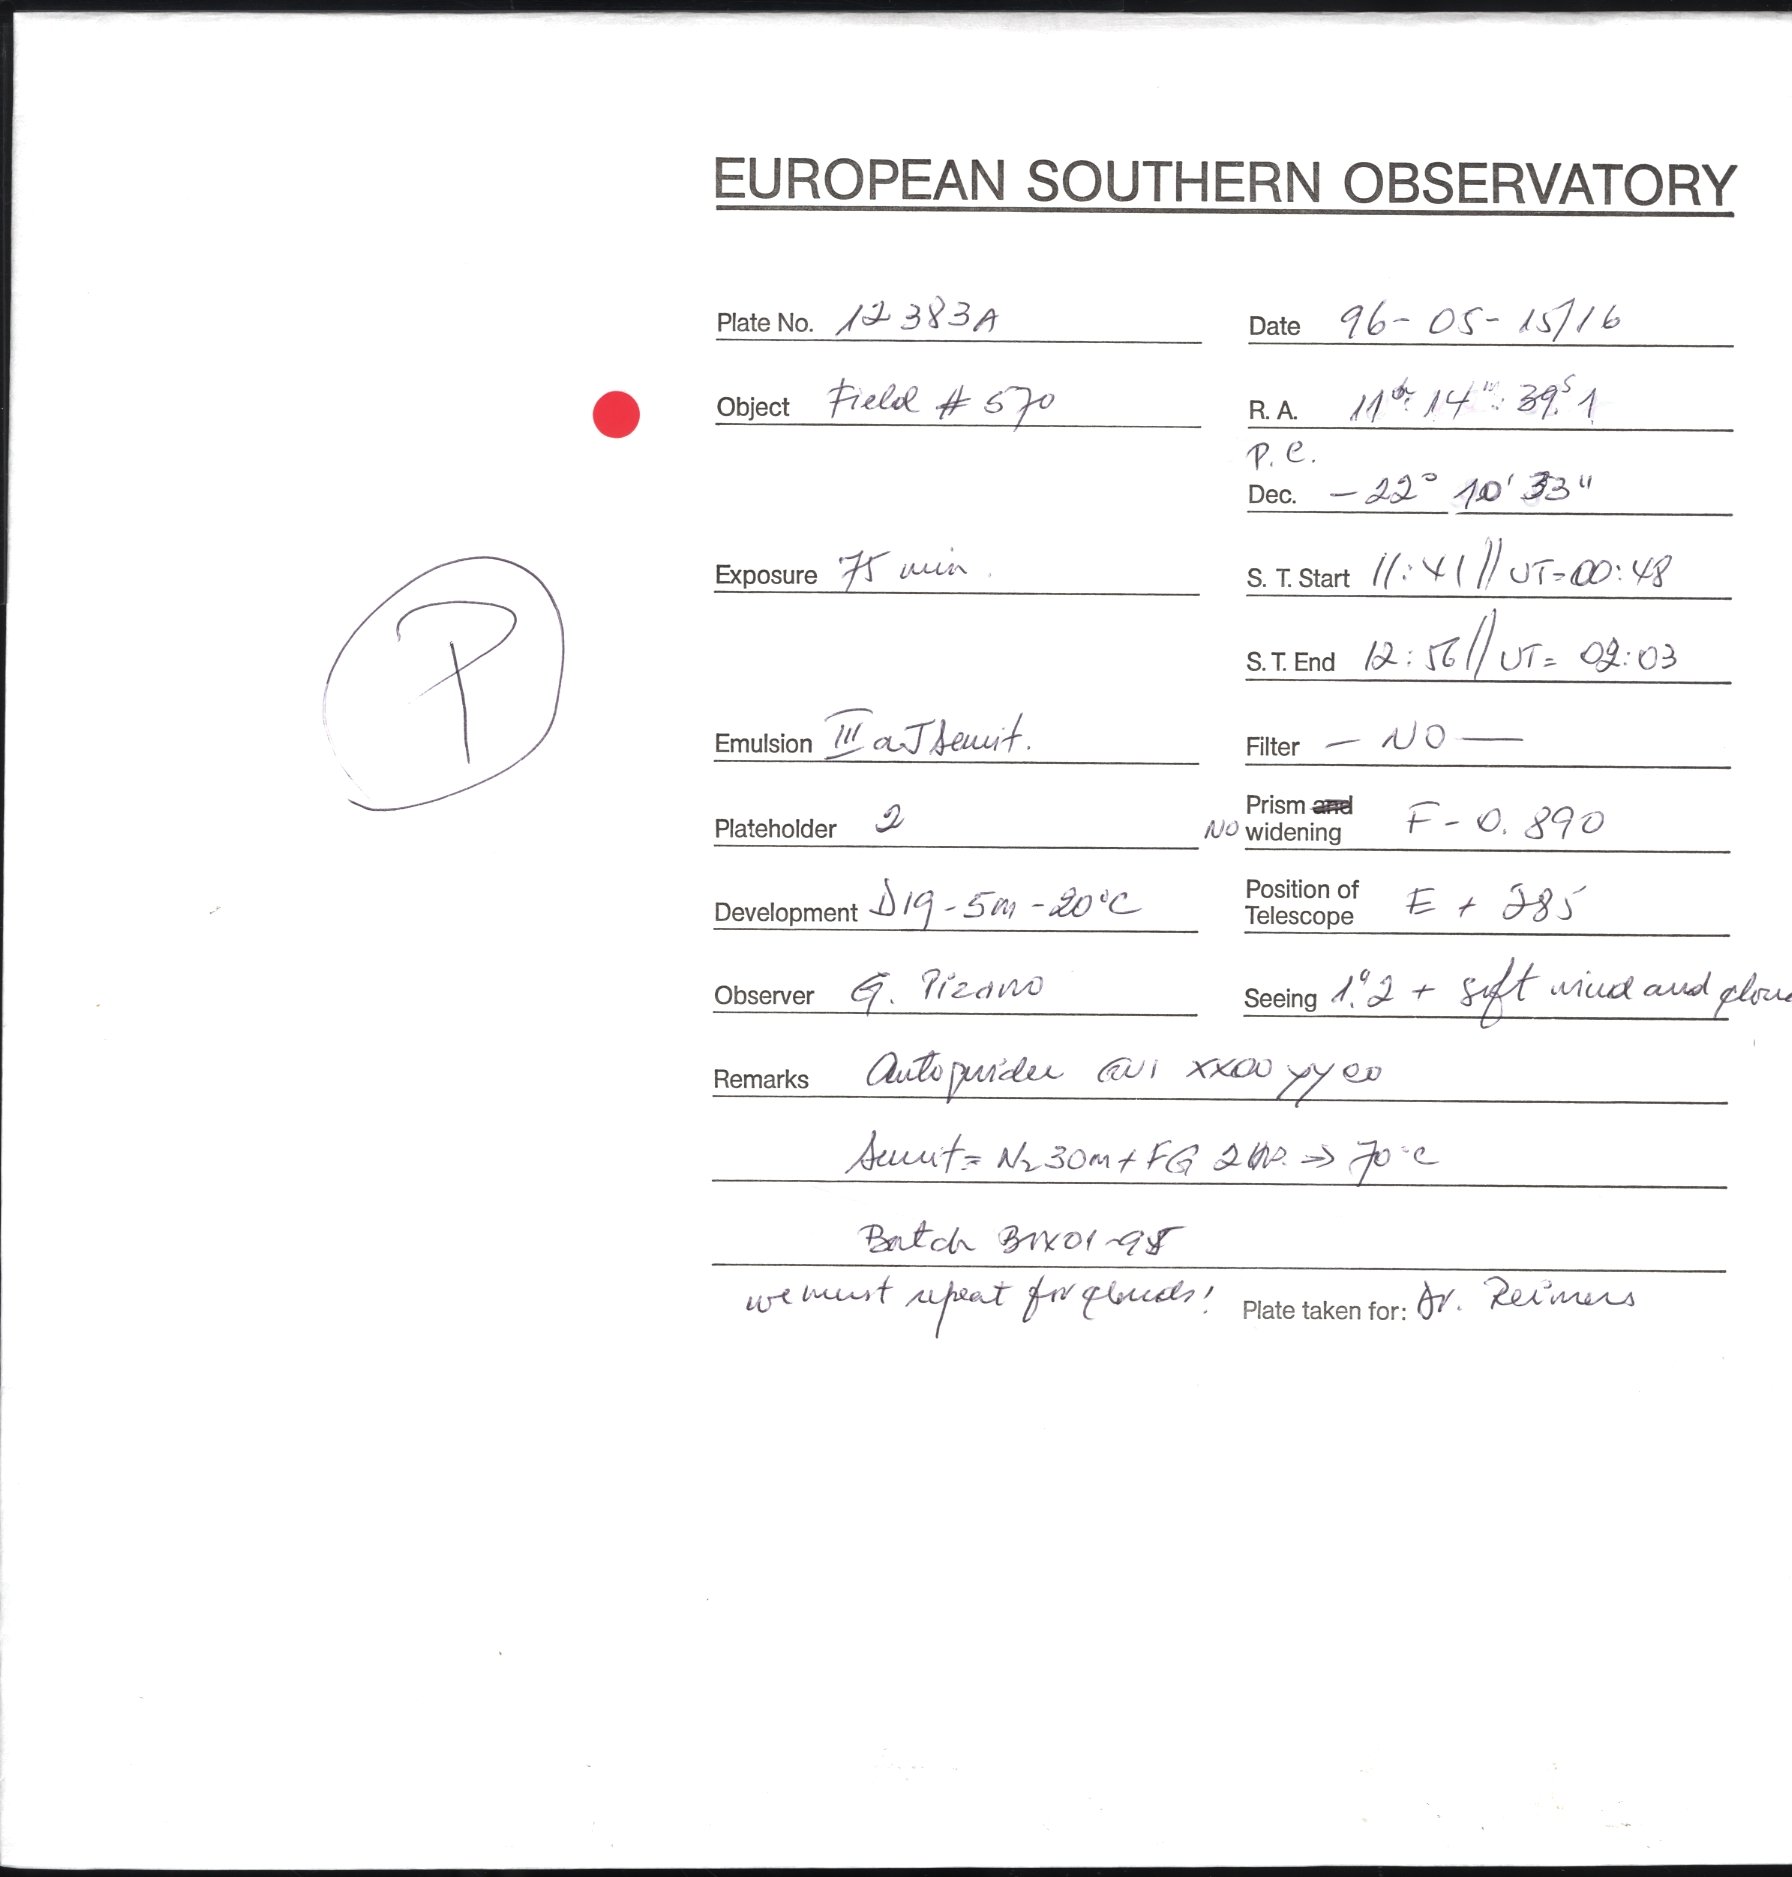 EUROPEAN SOUTHERN OBSERVATORY
Plate No. 12383A
Date 96-05-15/16
Object Field # 570
R. A. 11h: 14m: 39s.1
P. C.
Dec. -22° 10' 33"
P
Exposure 75 min.
S. T. Start 11:41 // UT=00:48
S. T. End 12:56 // UT= 02:03
Emulsion III aJ
Filter — NO —
Plateholder 2
NO Prism and widening F-0.890
Development D19-5m-20°C
Position of Telescope E + 285
Observer G. Pizarro
Seeing 1".2 + soft wind and
Remarks Autoguider xx00 yy00
N2 30m + FG 2 => 70°C
Batch
we must repeat for clouds! Plate taken for: Dr. Reimers